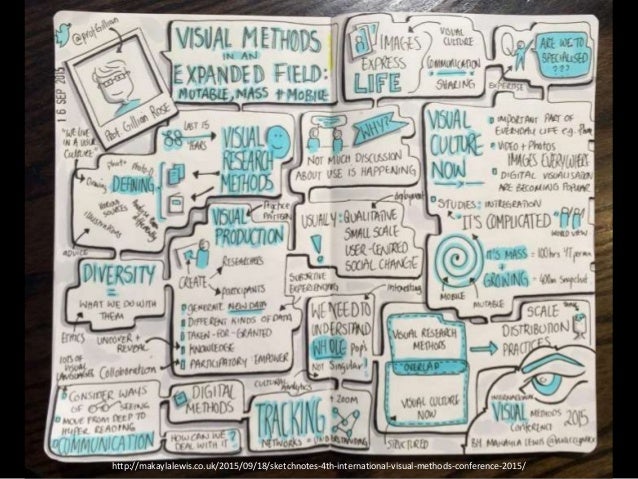 @profgillian
16 SEP 2015
Prof. Gillian Rose
VISUAL METHODS
IN AN
EXPANDED FIELD:
MUTABLE, MASS + MOBILE
"WE LIVE
IN A VISUAL
CULTURE"
LAST 15
YEARS
VISUAL
RESEARCH
METHODS
DEFINING
Drawing
VARIOUS
SOURCES
ADVICE
DIVERSITY
=
WHAT WE DO WITH
THEM
ETHICS
UNCOVER +
REVEAL
LOTS OF
VISUAL
LANGUAGES
Collaboration
CONSIDER WAYS
OF SEEING
MOVE FROM DEEP TO
HYPER READING
COMMUNICATION
VISUAL
PRODUCTION
CREATE
RESEARCHERS
PARTICIPANTS
GENERATE NEW DATA
DIFFERENT KINDS OF DATA
TAKEN-FOR-GRANTED
KNOWLEDGE
PARTICIPATORY EMPOWER
DIGITAL
METHODS
HOW CAN WE
DEAL WITH IT?
CULTURAL
Analytics
TRACKING
NETWORKS = UNDERSTANDING
+ ZOOM
IMAGES
EXPRESS
LIFE
VISUAL
CULTURE
COMMUNICATION
SHARING
ARE WE TOO
SPECIALISED
???
EXPERTISE
WHY?
NOT MUCH DISCUSSION
ABOUT USE IS HAPPENING
USUALLY: QUALITATIVE
SMALL SCALE
USER-CENTRED
SOCIAL CHANGE
SUBJECTIVE
EXPERIENCING
interesting
WE NEED TO
UNDERSTAND
WHOLE pop's
Not Singular!
VISUAL
CULTURE
NOW
IMPORTANT PART OF
EVERYDAY LIFE e.g. Phone
VIDEO + PHOTOS
IMAGES EVERYWHERE
DIGITAL VISUALISATION
ARE BECOMING POPULAR
STUDIES: INTREGRATION
"IT'S COMPLICATED"
WORLD VIEW
IT'S MASS = 100hrs YT per min
+
GROWING = 400m Snapchat
MOBILE
MUTABLE
VISUAL RESEARCH
METHODS
"OVERLAP"
VISUAL CULTURE
NOW
STRUCTURED
SCALE
DISTRIBUTION
PRACTICES
INTERNATIONAL
VISUAL METHODS
CONFERENCE
2015
BY MAKAYLA LEWIS
http://makaylalewis.co.uk/2015/09/18/sketchnotes-4th-international-visual-methods-conference-2015/